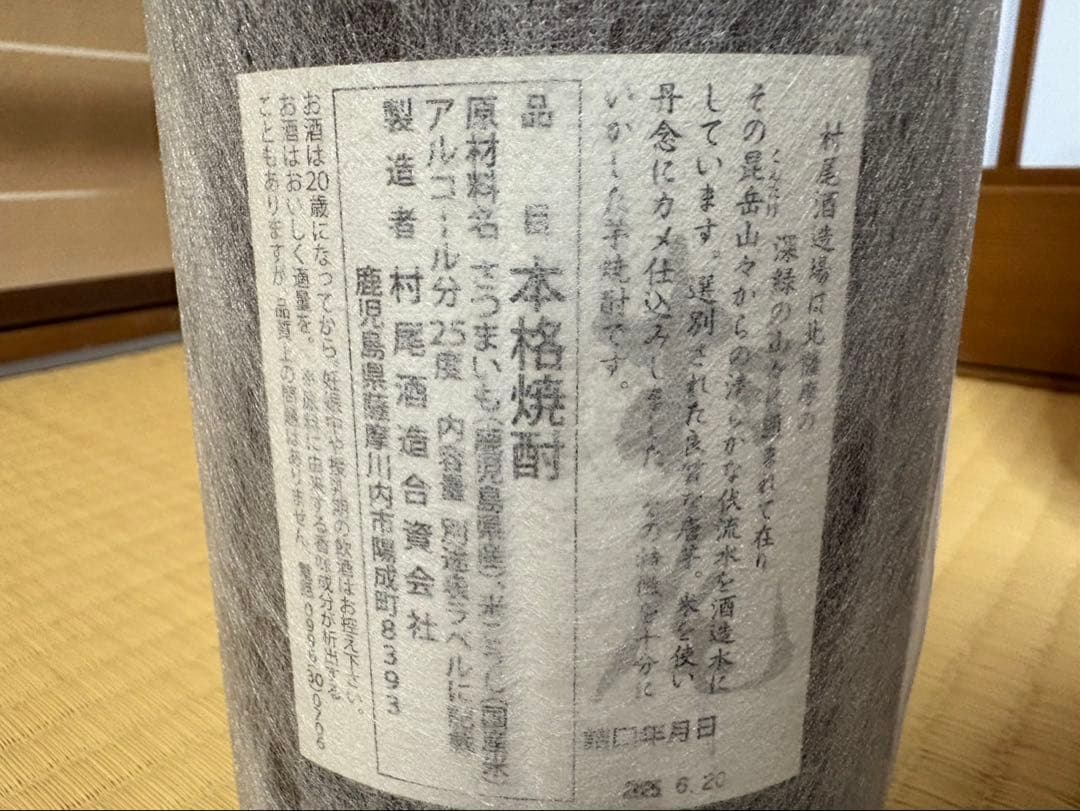 村尾酒造場は北薩摩の
深緑の山々に囲まれて在り
その昆岳山々からの清らかな伏流水を酒造水に
しています。選別された良質な唐芋。米を使い
丹念にカメ仕込みしました。その特性を十分に
いかした芋焼酎です。
詰口年月日
2025 6.20
品目 本格焼酎
原材料名 さつまいも(鹿児島県産)、米こうじ(国産米)
アルコール分25度 内容量 別途表ラベルに記載
製造者 村尾酒造合資会社
鹿児島県薩摩川内市陽成町8393
お酒は20歳になってから 妊娠中や授乳期の飲酒はお控え下さい。
お酒はおいしく適量を。 ※原料に由来する香味成分が析出する
こともありますが 品質上の問題はありません。 電話0996-30-0706